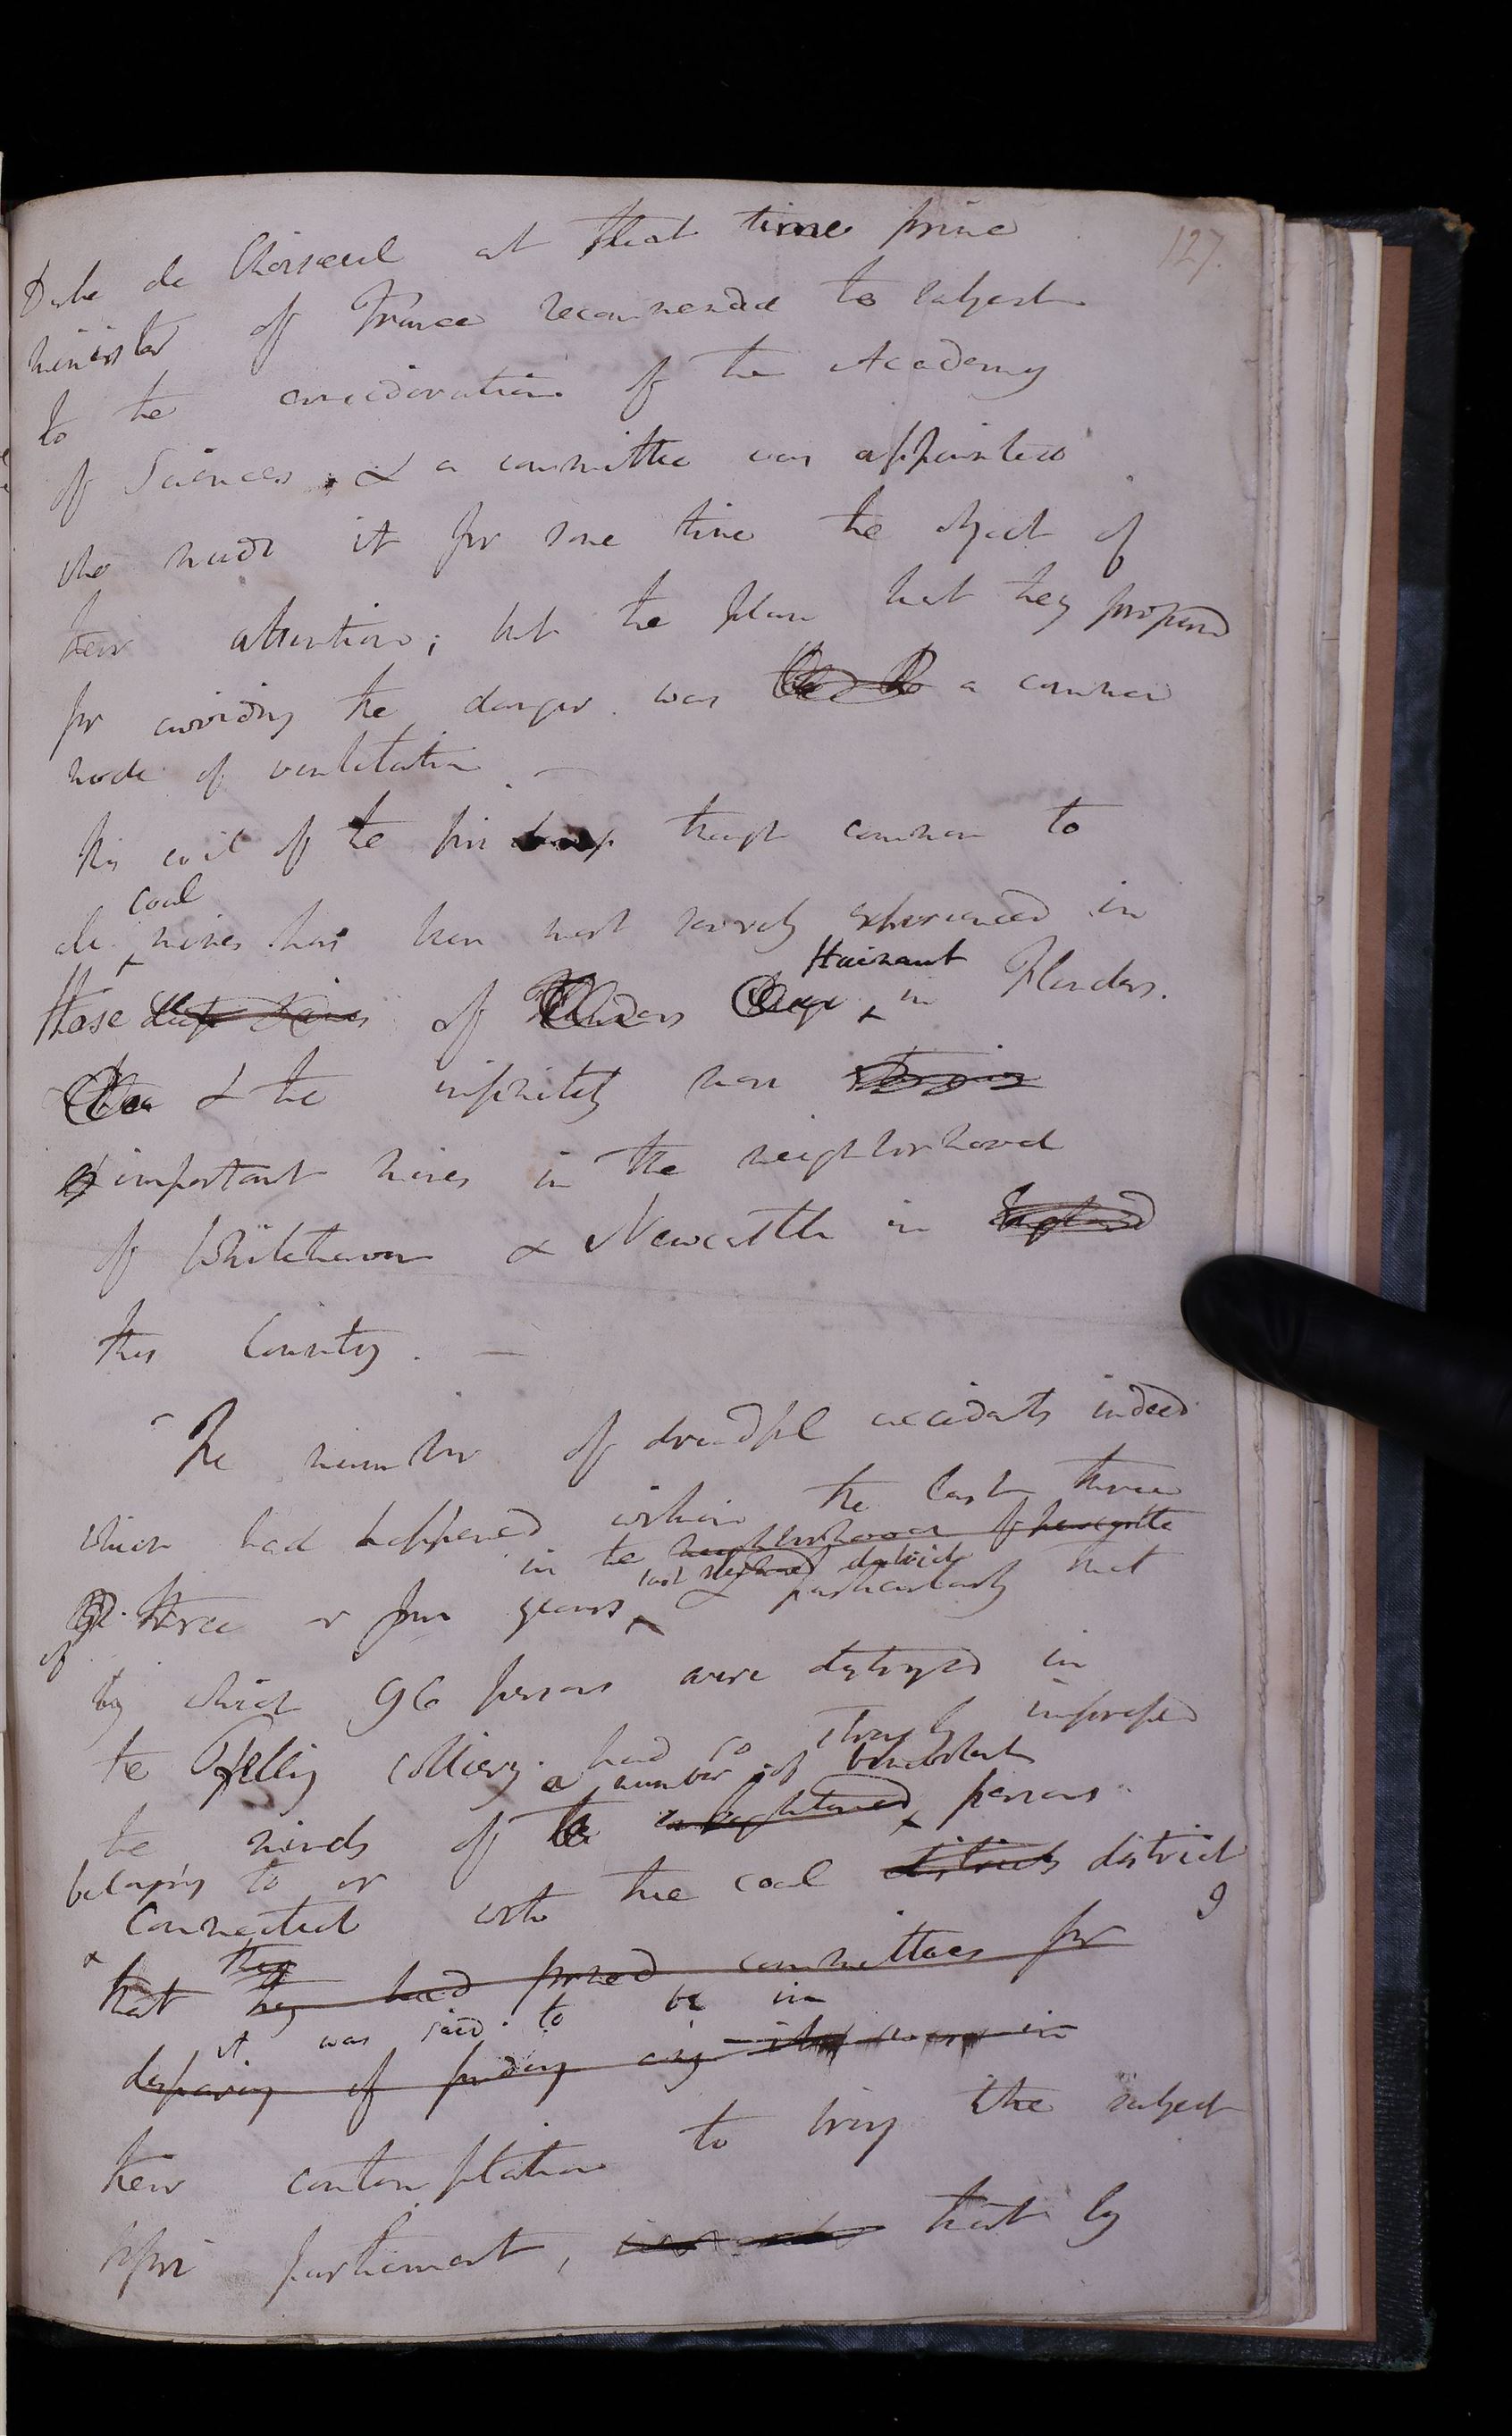 127.
Duke de Choiseul at that time prime
minister of France recommended the subject
to the consideration of the Academy
of Sciences, & a committee was appointed
who made it for some time the object of
their attention; but the plan that they proposed
for avoiding the danger was a common
mode of ventilation —
This evil of the fire damp though common to
coal
all mines has been most severely experienced in
Hainaut
those deep mines of in Flanders.
& the infinitely more
important mines in the neighborhood
of Whitehaven & Newcastle in England
this Country. —
The number of dreadful accidents indeed
which had happened within the last three
in the neighborhood of Newcastle
last mentioned district
three or four years & particularly that
of
by which 96 persons were destroyed in
the Felling colliery had so strongly impressed
a number of benevolent
the minds of the enlightened persons
belonging to or
connected with the coal districts district
& they
that they had formed committees for
it was said to be in
despairing of finding any in
their contemplation to bring the subject
before parliament, that by